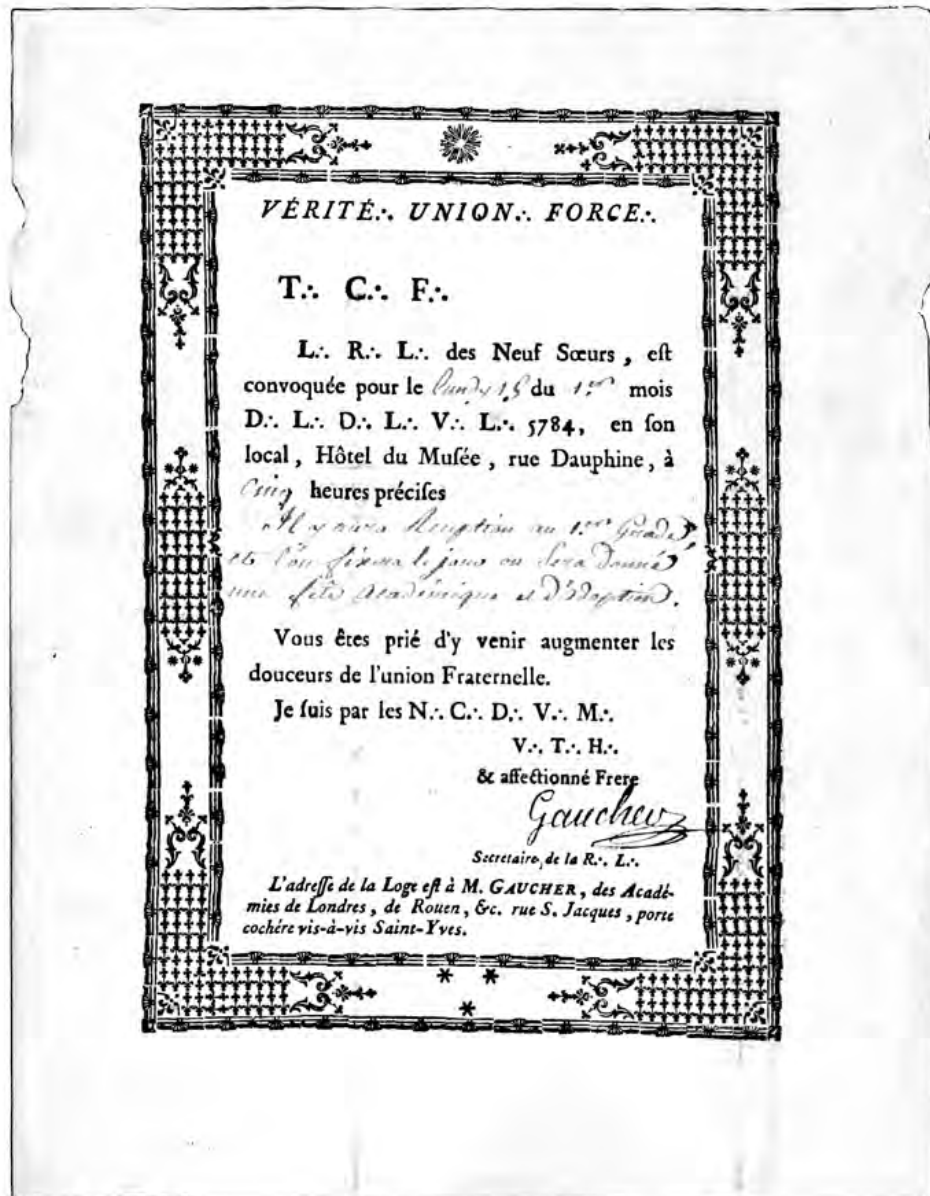 VÉRITÉ∴ UNION∴ FORCE∴
T∴ C∴ F∴
L∴ R∴ L∴ des Neuf Sœurs, eſt
convoquée pour le Lundy 15 du 1.er mois
D∴ L∴ D∴ L∴ V∴ L∴ 5784, en ſon
local, Hôtel du Muſée, rue Dauphine, à
Cinq heures préciſes
Il y aura Reception au 1.er Grade,
et l'on fixera le jour ou Sera donné
une fete académique et d'adoption.
Vous êtes prié d'y venir augmenter les
douceurs de l'union Fraternelle.
Je ſuis par les N∴ C∴ D∴ V∴ M∴
V∴ T∴ H∴
& affectionné Frere
Gaucher
Secretaire, de la R∴ L∴
L'adreſſe de la Loge eſt à M. GAUCHER, des Acadé-
mies de Londres, de Rouen, &c. rue S. Jacques, porte
cochére vis-à-vis Saint-Yves.